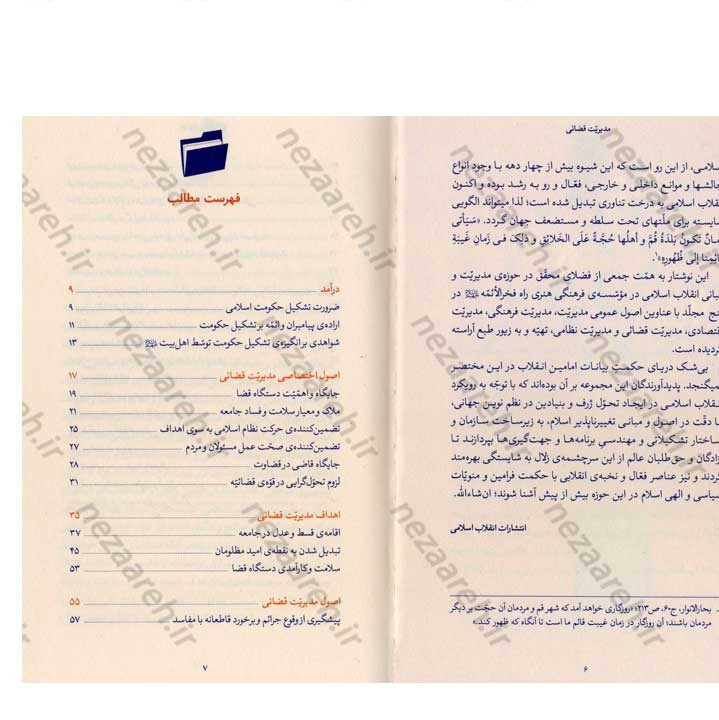 مدیریّت قضائی
از این رو است که این شیوه بیش از چهار دهه با وجود انواع
و موانع داخلی و خارجی، فعّال و رو به رشد بوده و اکنون
اسلامی به درخت تناوری تبدیل شده است؛ لذا میتواند الگویی
برای ملّتهای تحت سلطه و مستضعف جهان گردد. «سَیَأتی
تَکونُ بَلدَةُ قُمَّ وَ أهلُها حُجَّةً عَلَی الخَلائِقِ وَ ذلِکَ فی زَمانِ غَیبَةِ
إلی ظُهُورِهِ»¹.
این نوشتار به همّت جمعی از فضلای محقّق در حوزه‌ی مدیریّت و
انقلاب اسلامی در مؤسّسه‌ی فرهنگی هنری راه فخرالأئمّه در
مجلّد با عناوین اصول عمومی مدیریّت، مدیریّت فرهنگی، مدیریّت
مدیریّت قضائی و مدیریّت نظامی، تهیّه و به زیور طبع آراسته
گردیده است.
بی‌شک دریای حکمت بیانات امامین انقلاب در این مختصر
نمیگنجد. پدیدآورندگان این مجموعه بر آن بوده‌اند که با توجّه به رویکرد
انقلاب اسلامی در ایجاد تحوّل ژرف و بنیادین در نظم نوین جهانی،
دقّت در اصول و مبانی تغییرناپذیر اسلام، به زیرساخت سازمان و
ساختار تشکیلاتی و مهندسی برنامه‌ها و جهت‌گیری‌ها بپردازند تا
و حق‌طلبان عالم از این سرچشمه‌ی زلال به شایستگی بهره‌مند
گردند و نیز عناصر فعّال و نخبه‌ی انقلابی با حکمت فرامین و منویّات
سیاسی و الهی اسلام در این حوزه بیش از پیش آشنا شوند؛ ان‌شاءالله.
انتشارات انقلاب اسلامی
بحارالانوار، ج۶۰، ص۲۱۳؛ «روزگاری خواهد آمد که شهر قم و مردمان آن حجّت بر دیگر
مردمان باشند؛ آن روزگار در زمان غیبت قائم ما است تا آنگاه که ظهور کند.»
۶
فهرست مطالب
درآمد ۹
ضرورت تشکیل حکومت اسلامی ۹
اراده‌ی پیامبران و ائمّه بر تشکیل حکومت ۱۱
شواهدی بر انگیزه‌ی تشکیل حکومت توسّط اهل‌بیت ۱۳
اصول اختصاصی مدیریّت قضائی ۱۷
جایگاه و اهمّیّت دستگاه قضا ۱۹
ملاک و معیار سلامت و فساد جامعه ۲۱
تضمین‌کننده‌ی حرکت نظام اسلامی به سوی اهداف ۲۵
تضمین‌کننده‌ی صحّت عمل مسئولان و مردم ۲۷
جایگاه قاضی در قضاوت ۲۸
لزوم تحوّل‌گرایی در قوّه‌ی قضائیّه ۳۱
اهداف مدیریّت قضائی ۳۵
اقامه‌ی قسط و عدل در جامعه ۳۷
تبدیل شدن به نقطه‌ی امید مظلومان ۴۵
سلامت و کارآمدی دستگاه قضا ۵۳
اصول مدیریّت قضائی ۵۵
پیشگیری از وقوع جرائم و برخورد قاطعانه با مفاسد ۵۷
۷
nezaareh.ir
nezaareh.ir
nezaareh.ir
nezaareh.ir
nezaareh.ir
nezaareh.ir
nezaareh.ir
nezaareh.ir
nezaareh.ir